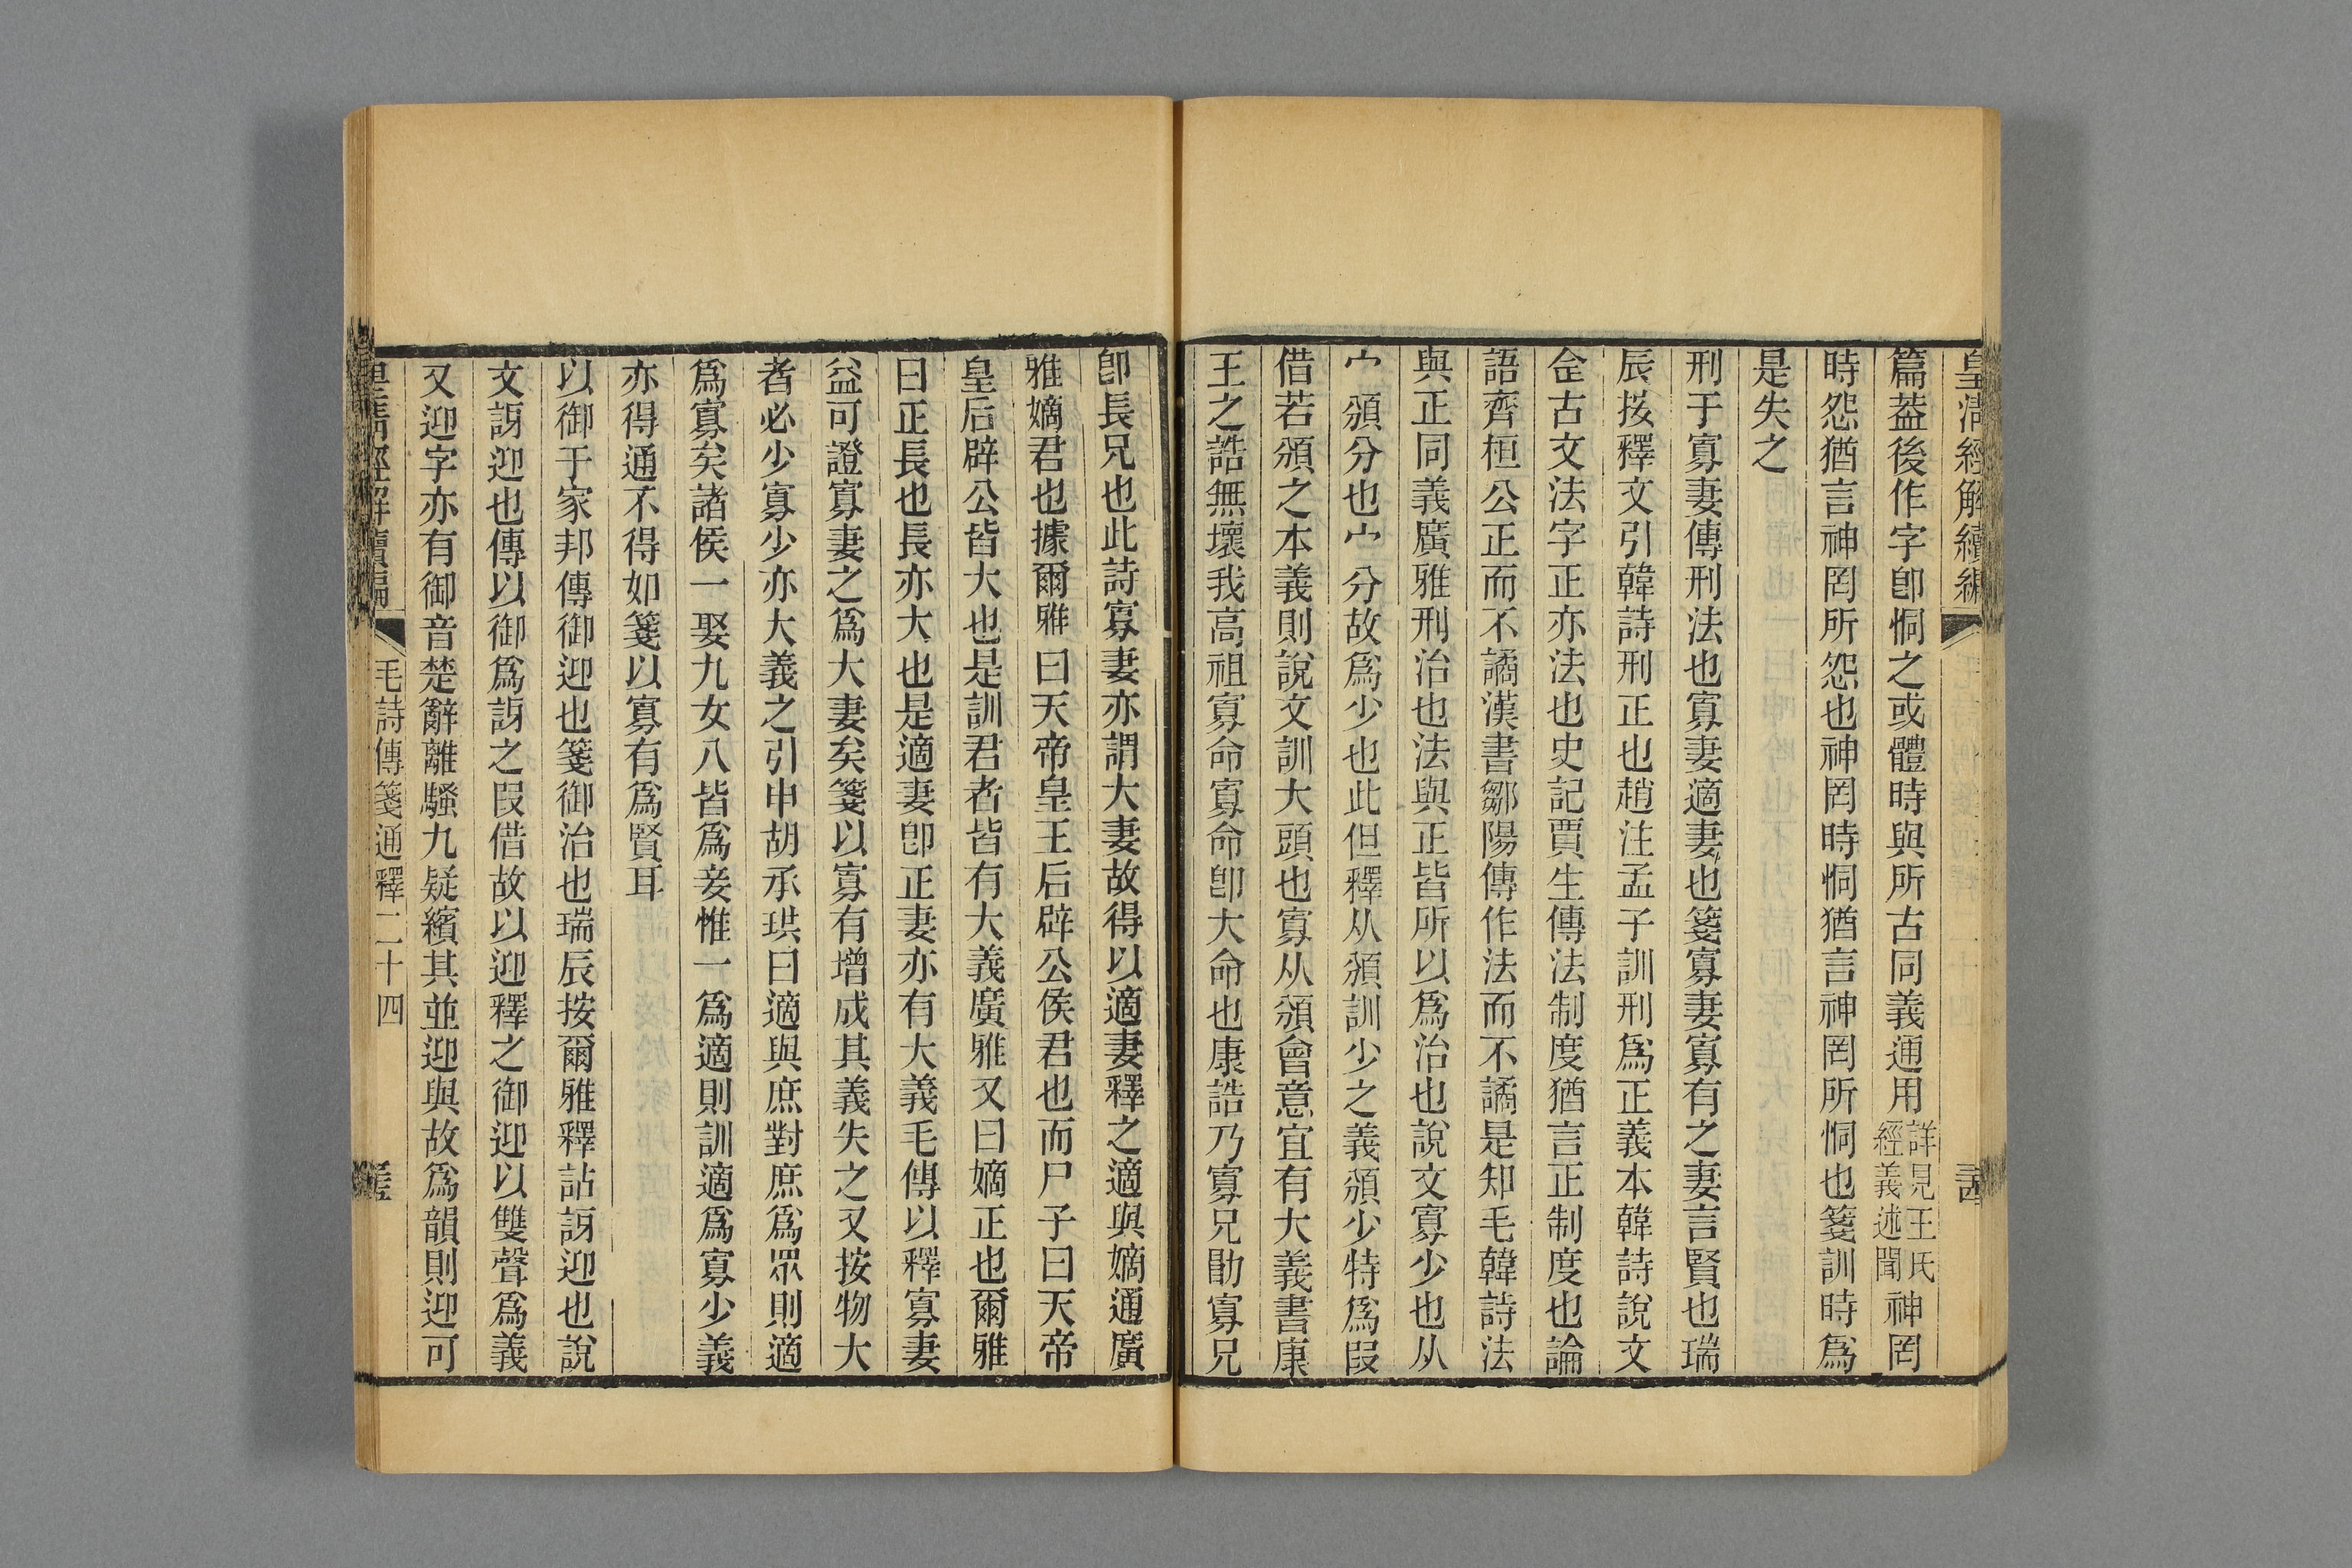 皇清經解續編
篇葢後作字卽恫之或體時與所古同義通用詳見王氏經義述聞神罔
時怨猶言神罔所怨也神罔時恫猶言神罔所恫也箋訓時爲
是失之
刑于寡妻傳刑法也寡妻適妻也箋寡妻寡有之妻言賢也瑞
辰按釋文引韓詩刑正也趙注孟子訓刑爲正義本韓詩說文
仝古文法字正亦法也史記賈生傳法制度猶言正制度也論
語齊桓公正而不譎漢書鄒陽傳作法而不譎是知毛韓詩法
與正同義廣雅刑治也法與正皆所以爲治也說文寡少也从
宀頒分也宀分故爲少也此但釋从頒訓少之義頒少特爲叚
借若頒之本義則說文訓大頭也寡从頒會意宜有大義書康
王之誥無壞我高祖寡命寡命卽大命也康誥乃寡兄勖寡兄
卽長兄也此詩寡妻亦謂大妻故得以適妻釋之適與嫡通廣
雅嫡君也據爾雅曰天帝皇王后辟公侯君也而尸子曰天帝
皇后辟公皆大也是訓君者皆有大義廣雅又曰嫡正也爾雅
曰正長也長亦大也是適妻卽正妻亦有大義毛傳以釋寡妻
益可證寡妻之爲大妻矣箋以寡有增成其義失之又按物大
者必少寡少亦大義之引申胡承珙曰適與庶對庶爲眾則適
爲寡矣諸侯一娶九女八皆爲妾惟一爲適則訓適爲寡少義
亦得通不得如箋以寡有爲賢耳
以御于家邦傳御迎也箋御治也瑞辰按爾雅釋詁訝迎也說
文訝迎也傳以御爲訝之叚借故以迎釋之御迎以雙聲爲義
又迎字亦有御音楚辭離騷九疑繽其並迎與故爲韻則迎可
皇淸經解續編 毛詩傳箋通釋二十四